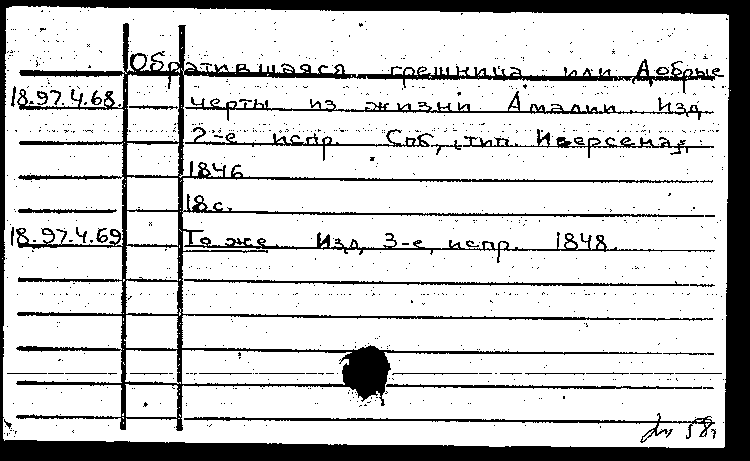 Обратившаяся грешница или Добрые
18.97.4.68. черты из жизни Амалии. Изд.
2-е, испр. Спб, тип. Иверсена,
1846
18 с.
18.97.4.69 То же. Изд. 3-е, испр. 1848.
58г